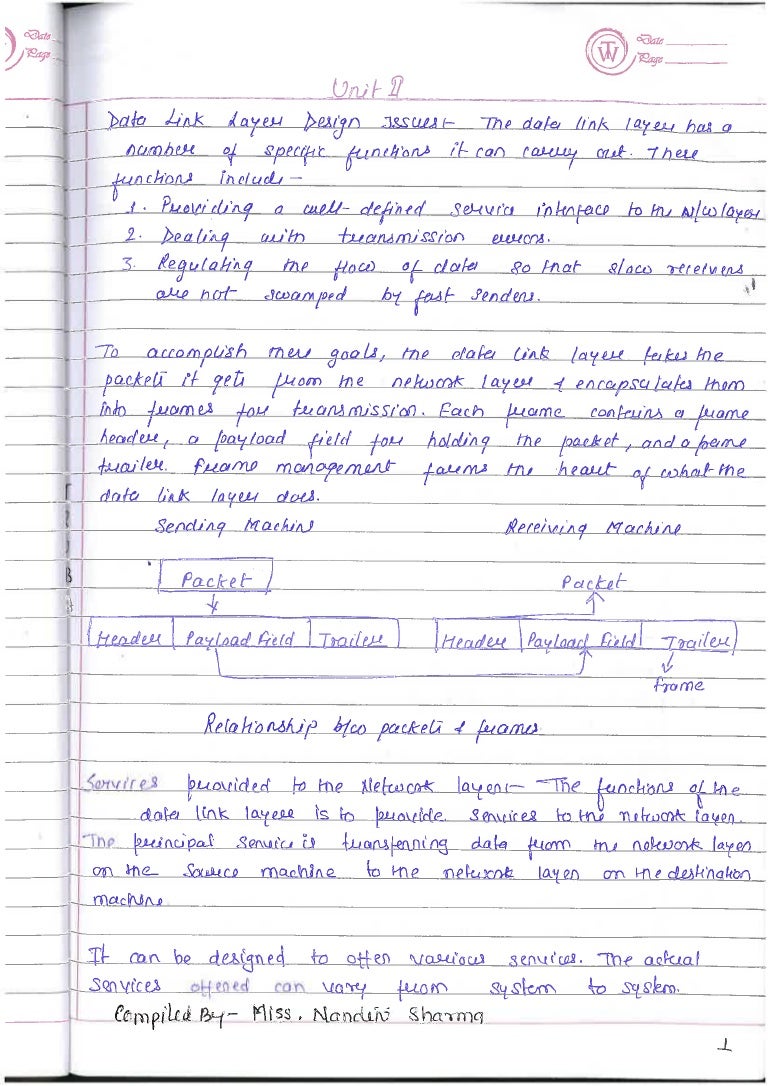 Date
Page
TW
Date
Page
Unit II
Data Link Layer Design Issues:- The data link layer has a
number of specific functions it can carry out. These
functions include -
1. Providing a well-defined service interface to the N/w layer
2. Dealing with transmission errors.
3. Regulating the flow of data so that slow receivers
are not swamped by fast senders.
To accomplish these goals, the data link layer takes the
packets it gets from the network layer & encapsulates them
into frames for transmission. Each frame contains a frame
header, a payload field for holding the packet, and a frame
trailer. Frame management forms the heart of what the
data link layer does.
Sending Machine Receiving Machine
Packet Packet
Header Payload Field Trailer Header Payload Field Trailer
frame
Relationship b/w packets & frames
Services provided to the Network layer:- The functions of the
data link layer is to provide services to the network layer.
The principal service is transferring data from the network layer
on the source machine to the network layer on the destination
machine
It can be designed to offer various services. The actual
services offered can vary from system to system.
Compiled By- Miss. Nandini Sharma
1